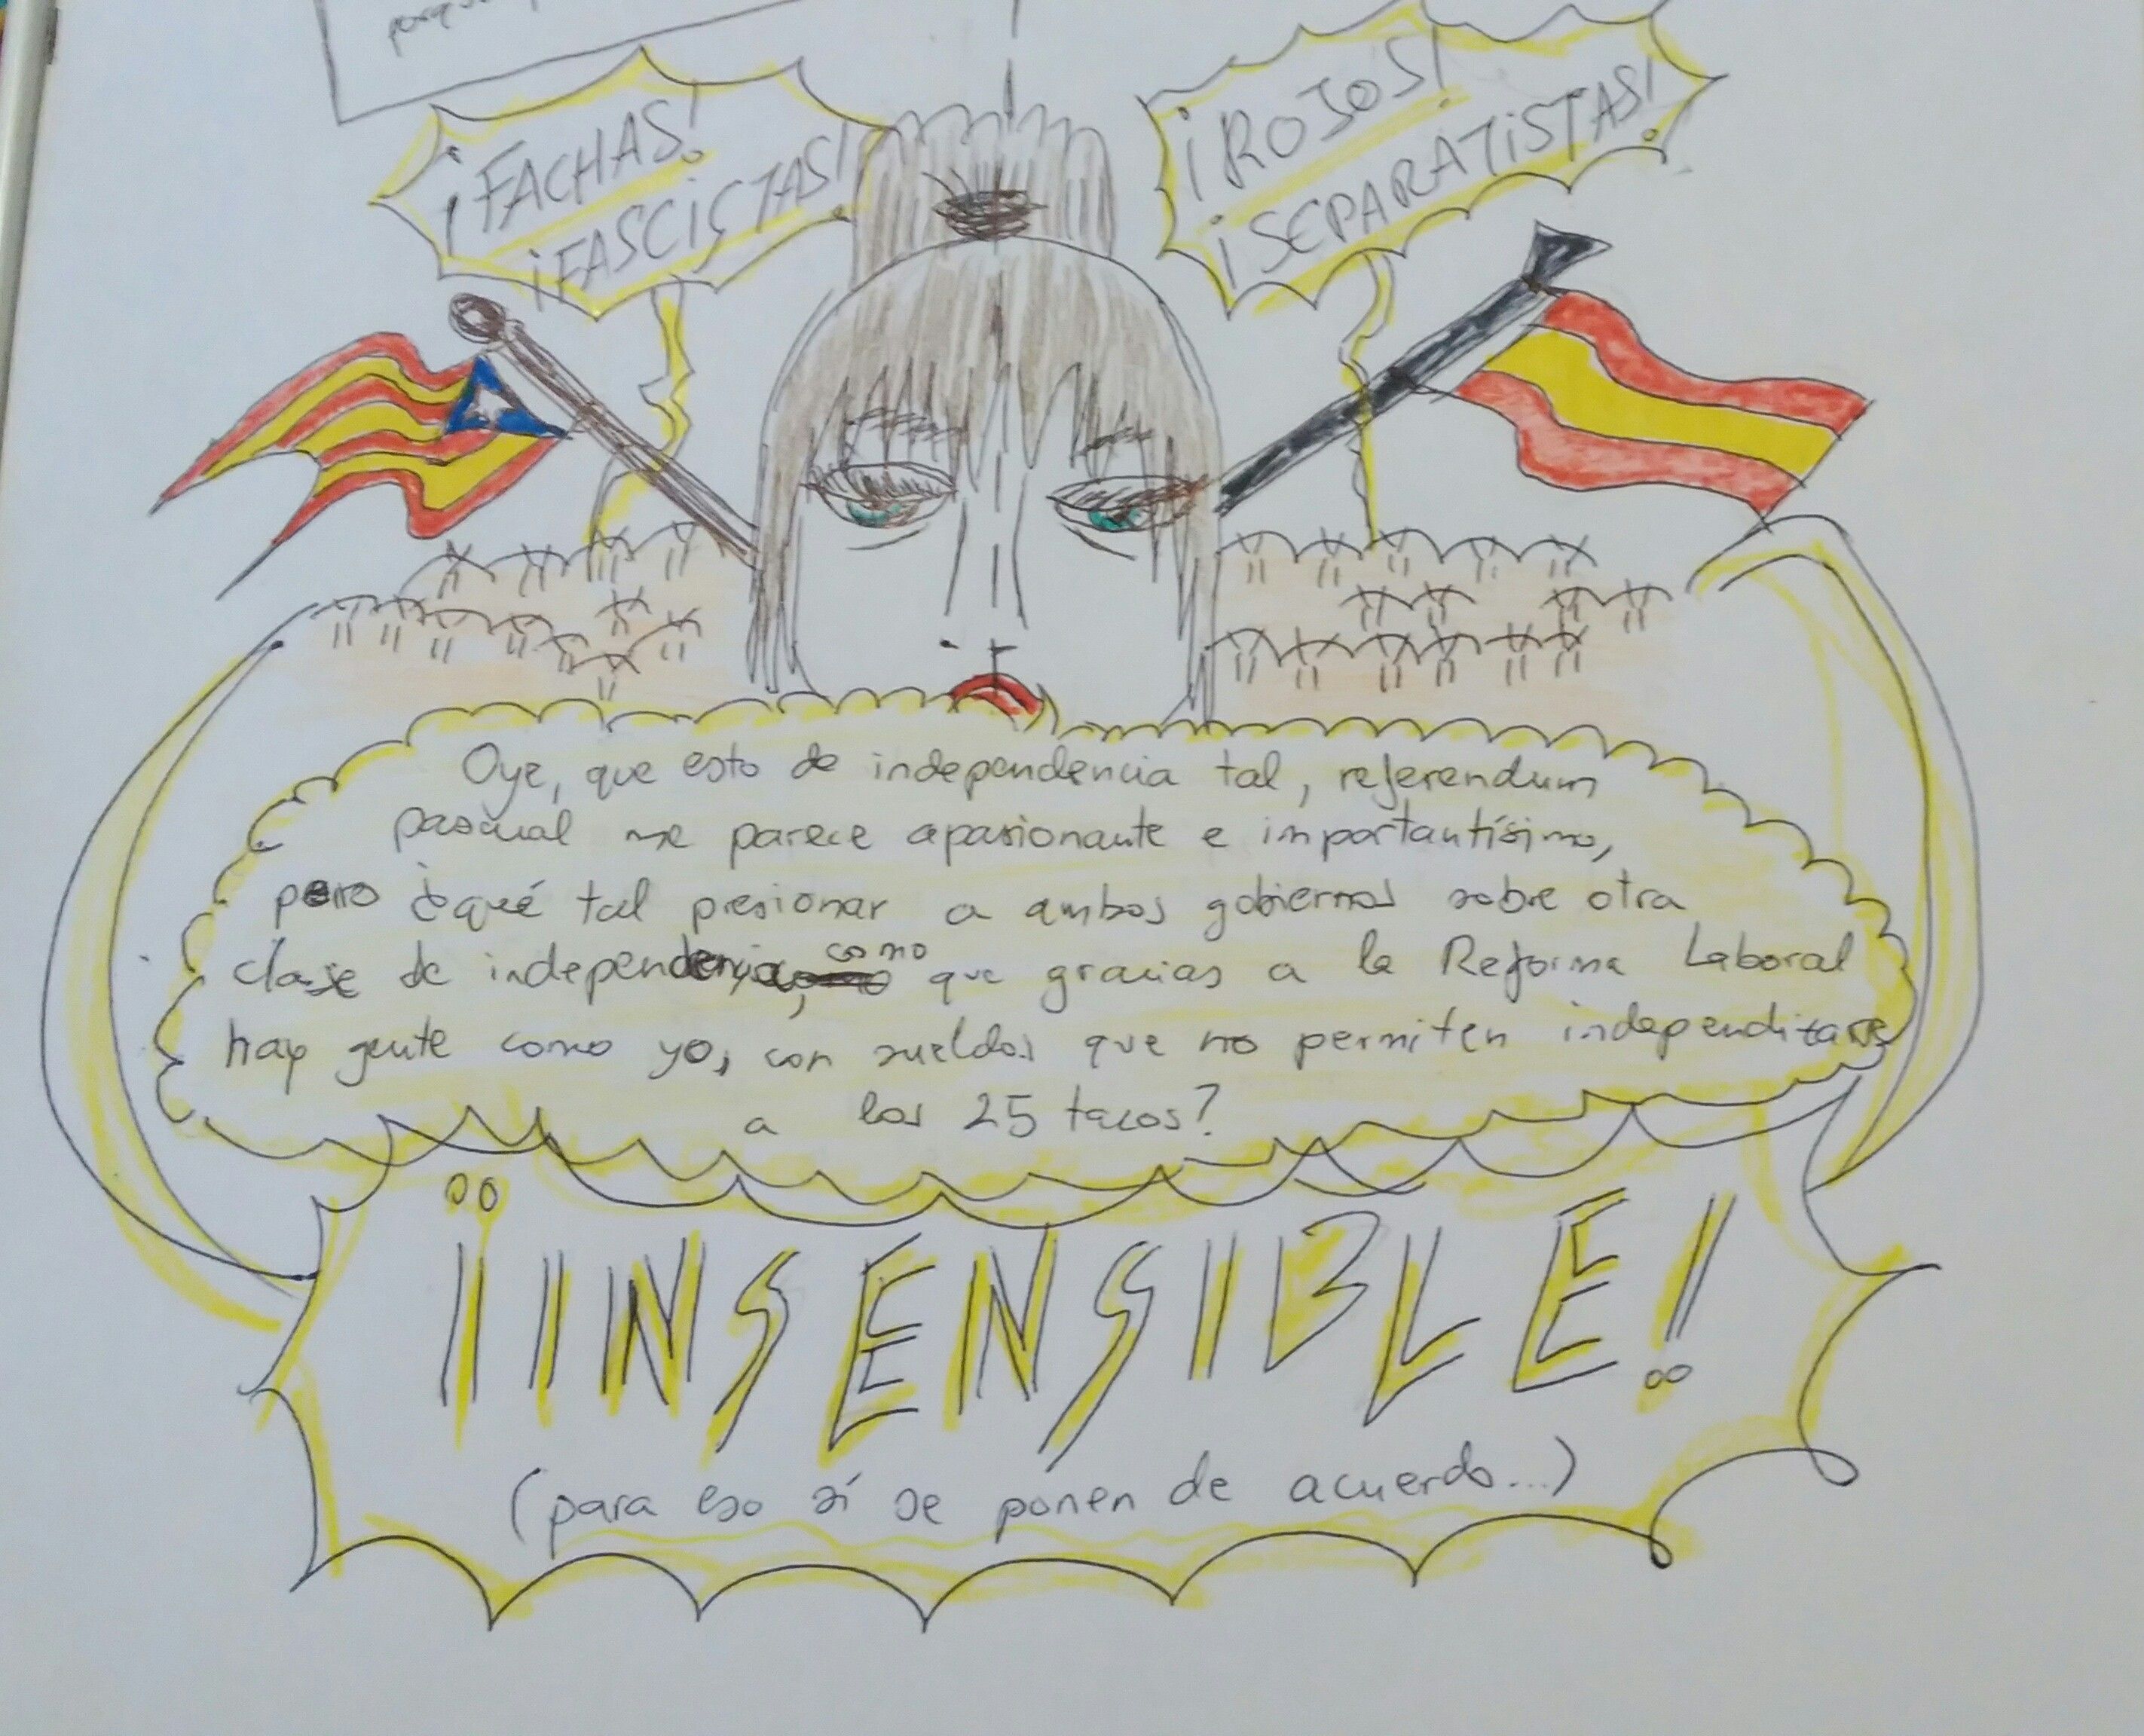 ¡FACHAS!
¡FASCISTAS!
¡ROJOS!
¡SEPARATISTAS!
Oye, que esto de independencia tal, referendum
pascual me parece apasionante e importantísimo,
pero ¿qué tal presionar a ambos gobiernos sobre otra
clase de independencia, como que gracias a la Reforma Laboral
hay gente como yo, con sueldos que no permiten independizarse
a los 25 tacos?
¡INSENSIBLE!
(para eso sí se ponen de acuerdo...)